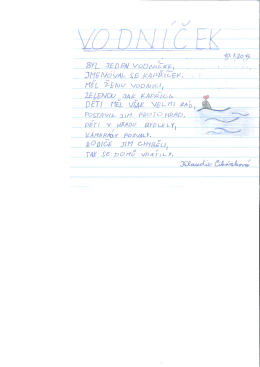 VODNÍČEK
BYL JEDEN VODNÍČEK,
JMENOVAL SE KAPŘÍČEK.
MĚL ŽENU VODNICI,
ZELENOU JAK KAPŘICI.
DĚTI MĚL VŠAK VELMI RÁD,
POSTAVIL JIM PROTO HRAD.
DĚTI V HRADU BYDLELY,
KAMARÁDY POZVALY.
RODIČE JIM CHYBĚLI,
TAK SE DOMŮ VRÁTILY.
Klaudie